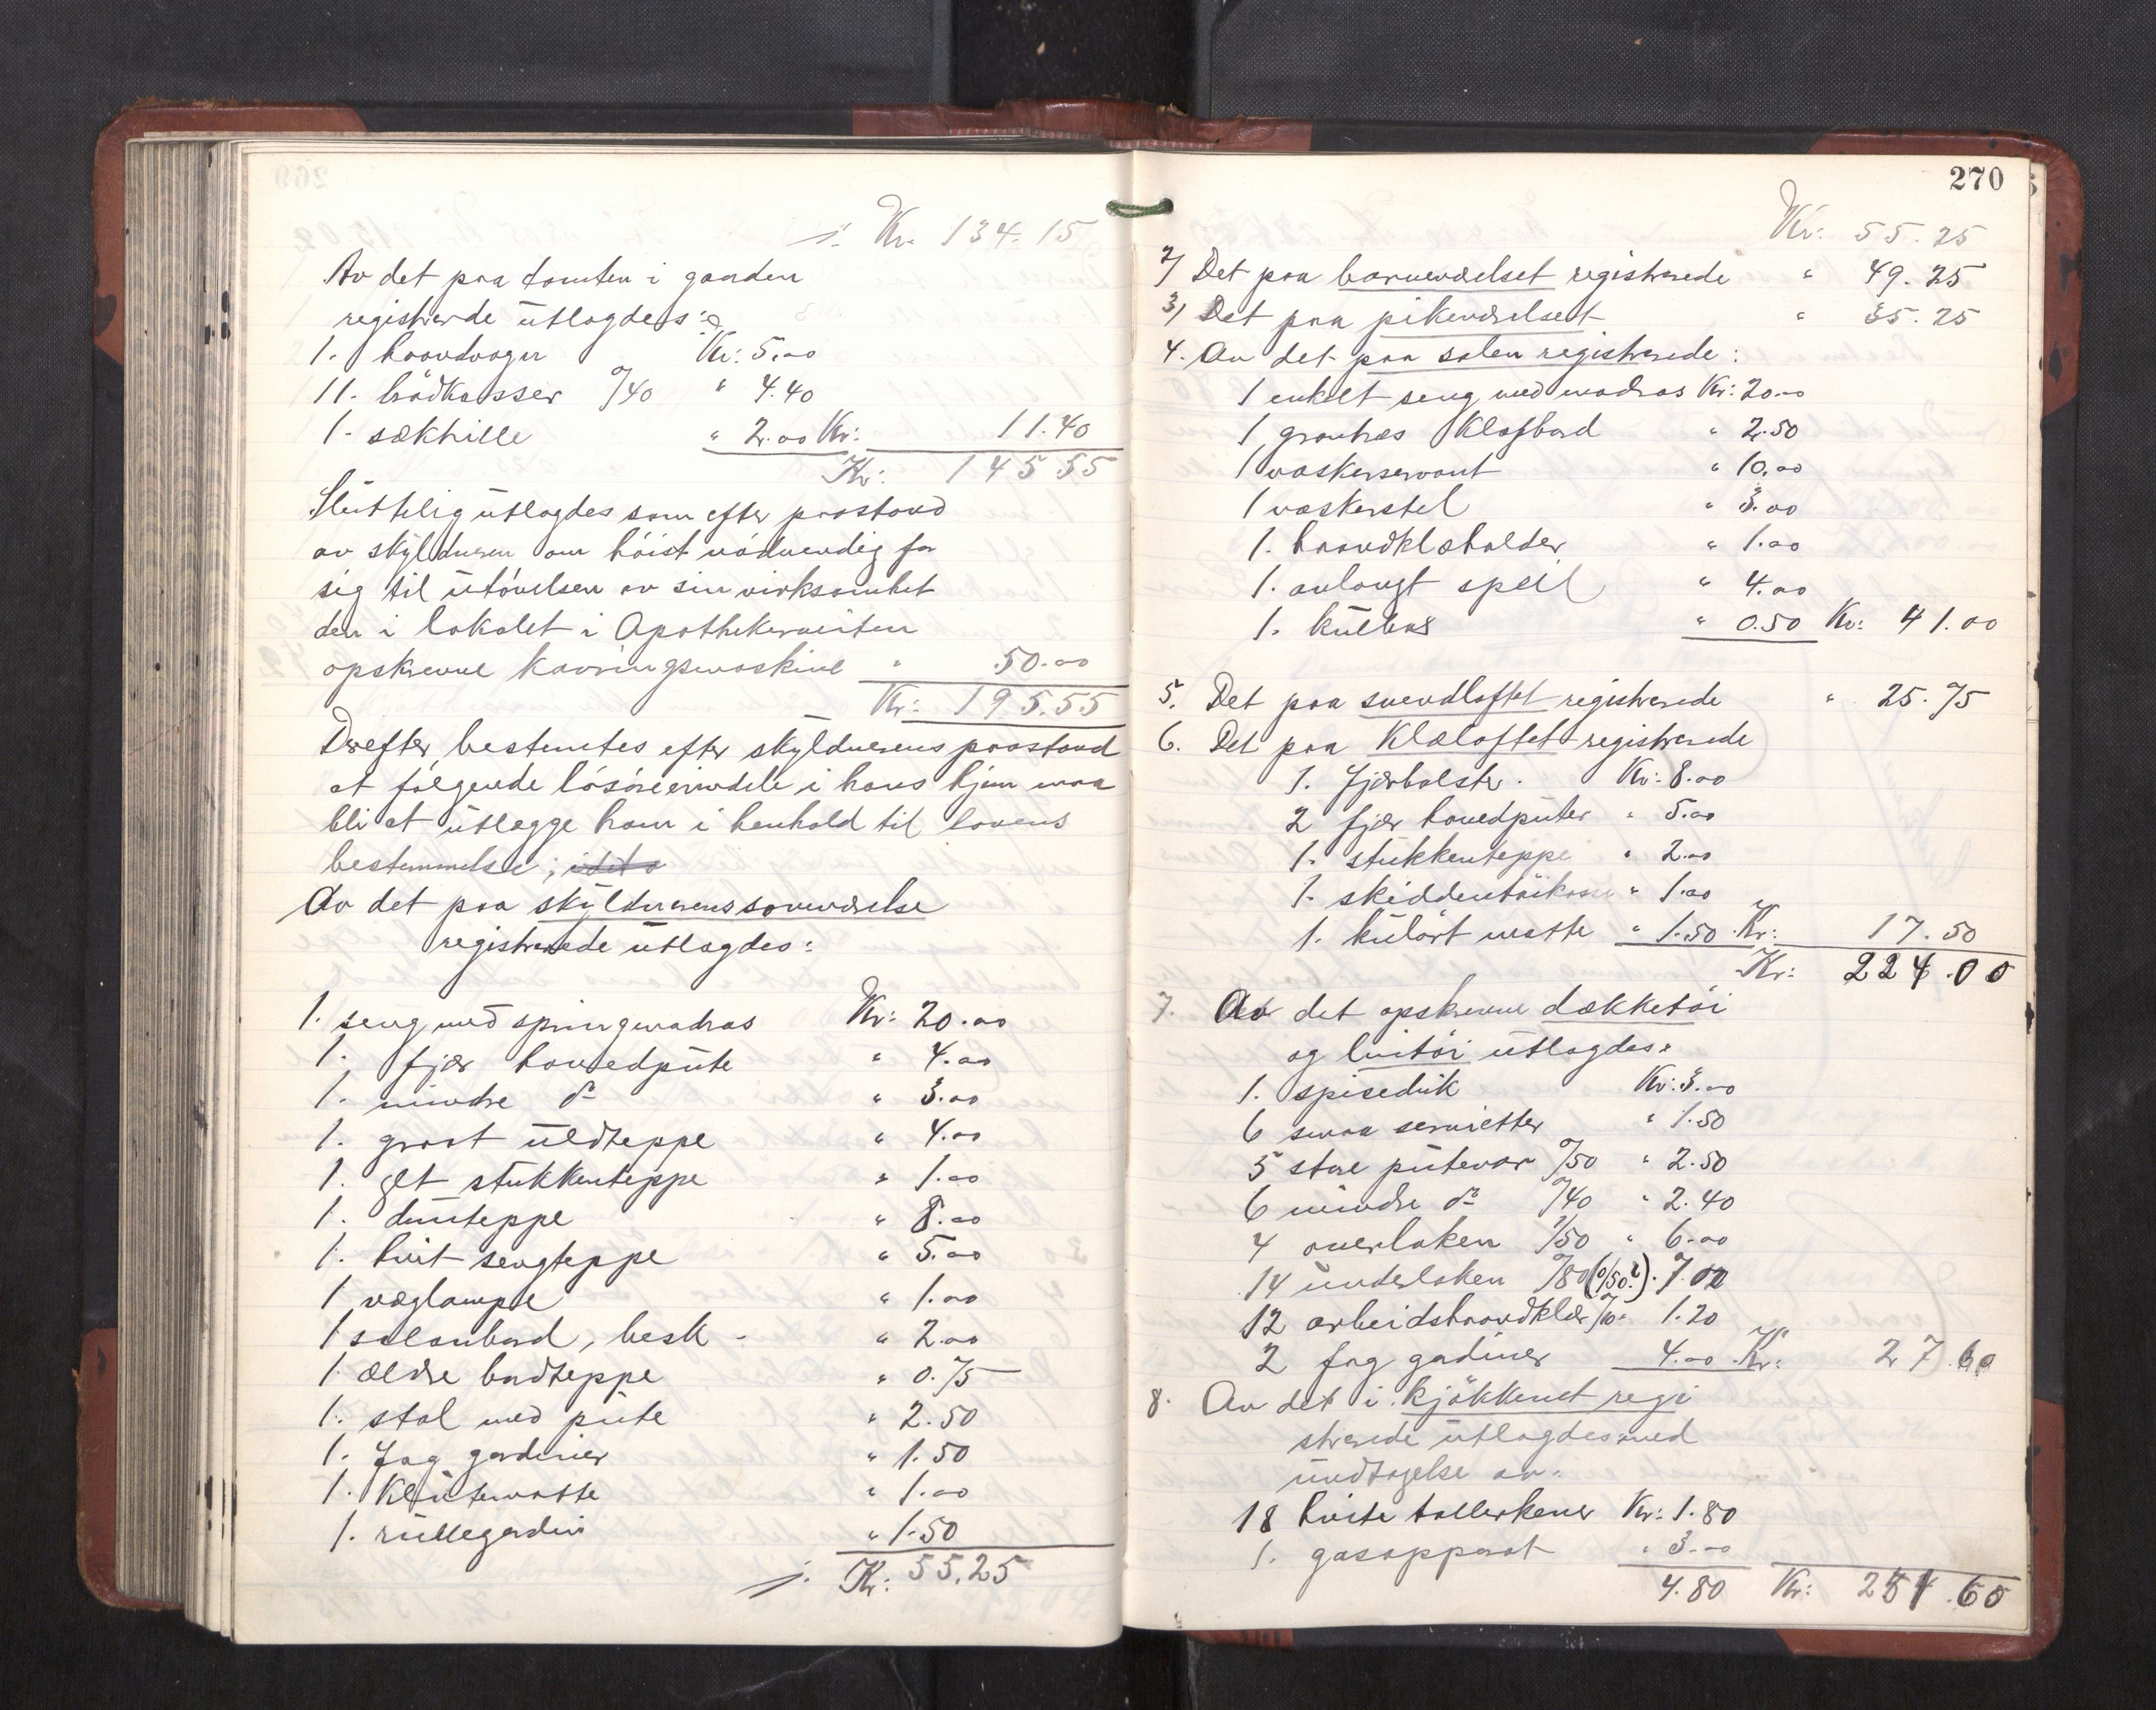 j. Kr. 134.15
Av det paa tomten i gaarden
registrerede utlagdes:
1. haandvogn Kr: 5.00
11. brödkasser 0/40 " 4.40
1. sækhille " 2.00 Kr: 11.40
Kr: 145.55
Sluttelig utlagdes som efter paastand
av skyldneren om höist nödvendig for
sig til utövelsen av sin virksomhet
den i lokalet i Apothekerveiten
opskrevne kavringsmaskine " 50.00
Kr: 195.55
Derefter bestemtes efter skyldnerens paastand
at fölgende lösöreiendele i hans hjem maa
bli at utlægge ham i henhold til lovens
bestemmelse;
Av det paa skyldnerens soveværelse
registrerede utlagdes:
1. seng med springmadras Kr: 20.00
1. fjær hovedpute " 4.00
1. mindre do " 3.00
1. graat uldteppe " 4.00
1. gt stukkenteppe " 1.00
1. dunteppe " 8.00
1. hvit sengteppe " 5.00
1 væglampe " 1.00
1 salonbord, besk - " 2.00
1. ældre bordteppe " 0.75
1. stol med pute " 2.50
1. fag gardiner " 1.50
1. Klutematte " 1.00
1. rullegardin " 1.50
j. Kr: 55.25
270
Kr: 55.25
2/ Det paa barneværelset registrerede " 49.25
3/ Det paa pikeværelset " 35.25
4. Av det paa salen registrerede:
1 enkelt seng med madras Kr: 20.00
1 grantræs Klafbord " 2.50
1 vaskerservant " 10.00
1 vaskerstel " 3.00
1. haandklæholder " 1.00
1. avlangt speil " 4.00
1. kulbas " 0.50 Kr: 41.00
5. Det paa svendloftet registrerede " 25.75
6. Det paa Klæloftet registrerede
1. fjærbolster. Kr: 8.00
2 fjær hovedputer " 5.00
1. stukkenteppe " 2.00
1. skiddentöikasse " 1.00
1. kulört matte " 1.50 Kr: 17.50
Kr: 224.00
7. Av det opskrevne dækketöi
og lintöi utlagdes:
1. spiseduk Kr: 3.00
6 smaa servietter " 1.50
5 store putevar 0/50 " 2.50
6 mindre do 0/40 " 2.40
4 overlaken 1/50 " 6.00
14 underlaken 0/80 (0/50?) " 7.00
12 arbeidshaandklær 0/10 " 1.20
2 fag gardiner 4.00 Kr: 27.60
8. Av det i kjökkenet regi
strerede utlagdes med
undtagelse av:
18 hvite tallerkener Kr: 1.80
1. gasapparat " 3.00
4.80 Kr: 251.60